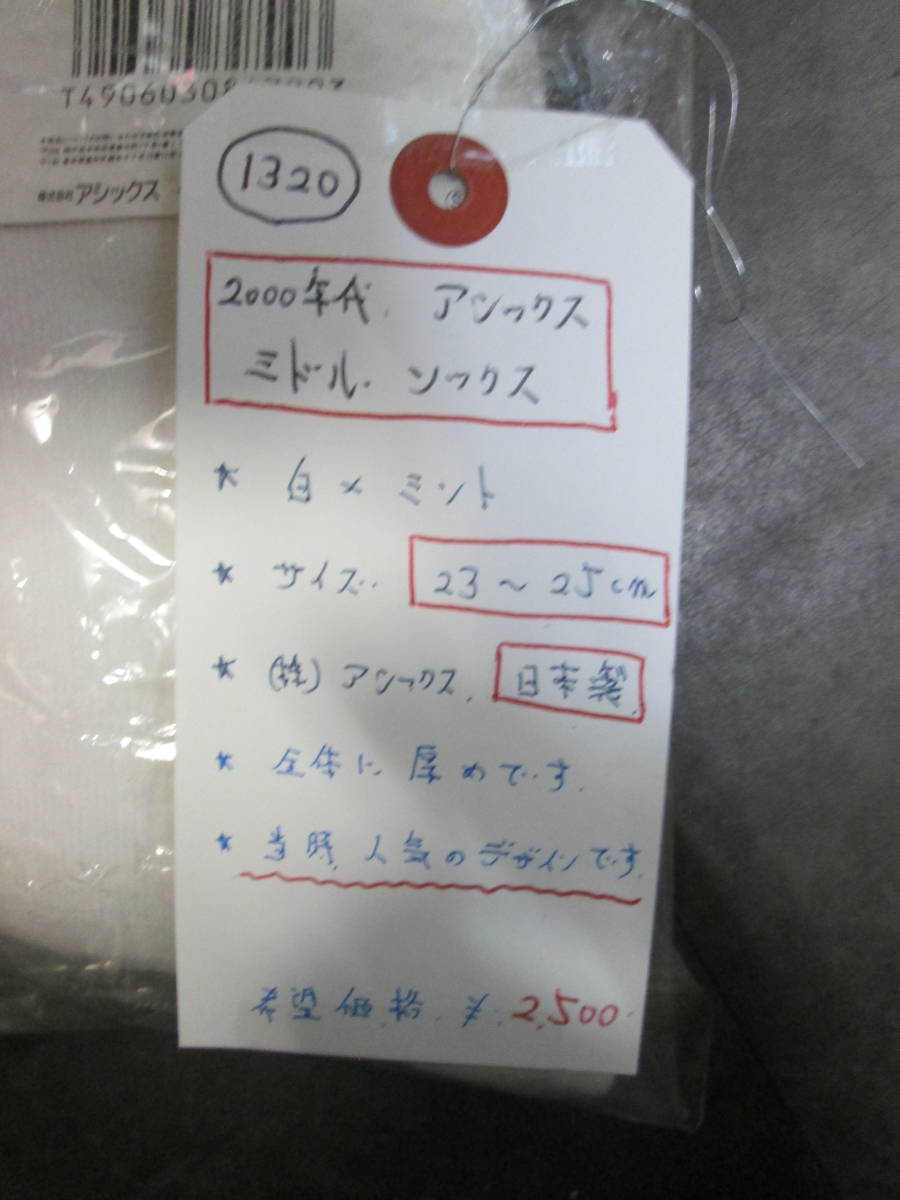 株式会社アシックス
1320
2000年代. アシックス
ミドル. ソックス
* 白 × ミント
* サイズ. 23 ~ 25 cm
* (株) アシックス. 日本製.
* 全体に 厚めです.
* 当時. 人気のデザインです.
希望価格. ¥. 2,500.